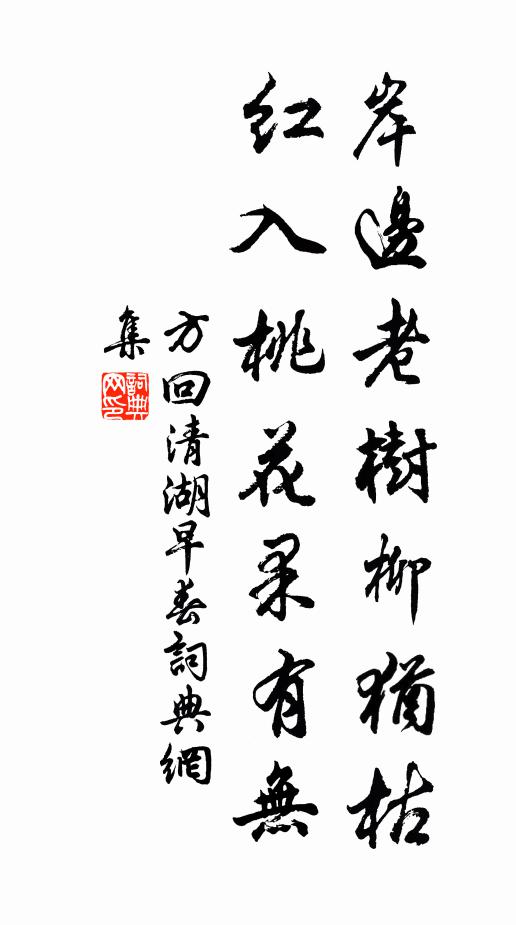 岸邊老樹柳猶枯
紅入桃花果有無
方回清湖早春詞典網
集
詞典
网印